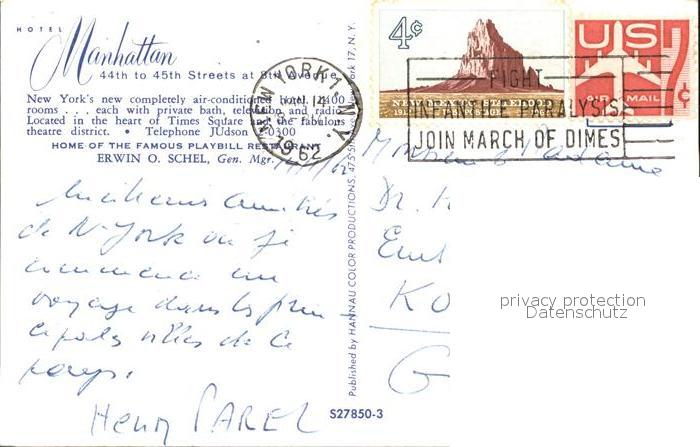 HOTEL
Manhattan
44th to 45th Streets at 8th Avenue
New York's new completely air-conditioned hotel. 1400
rooms . . . each with private bath, television and radio.
Located in the heart of Times Square and the fabulous
theatre district. • Telephone JUdson 0300
HOME OF THE FAMOUS PLAYBILL RESTAURANT
ERWIN O. SCHEL, Gen. Mgr.
Meilleurs amitiés
de N-York où je
commence un
voyage dans les prin-
cipales villes de ce
pays.
Henry PAREL
Published by HANNAU COLOR PRODUCTIONS, 475 York 17, N.Y.
S27850-3
NEW YORK 1, N.Y.
JAN 14
1962
4¢
NEW MEXICO STATEHOOD
U.S. POSTAGE
US
AIR MAIL
7¢
FIGHT
INFANTILE PARALYSIS
JOIN MARCH OF DIMES
Monsieur & Madame
Dr. H
K O
G
privacy protection
Datenschutz